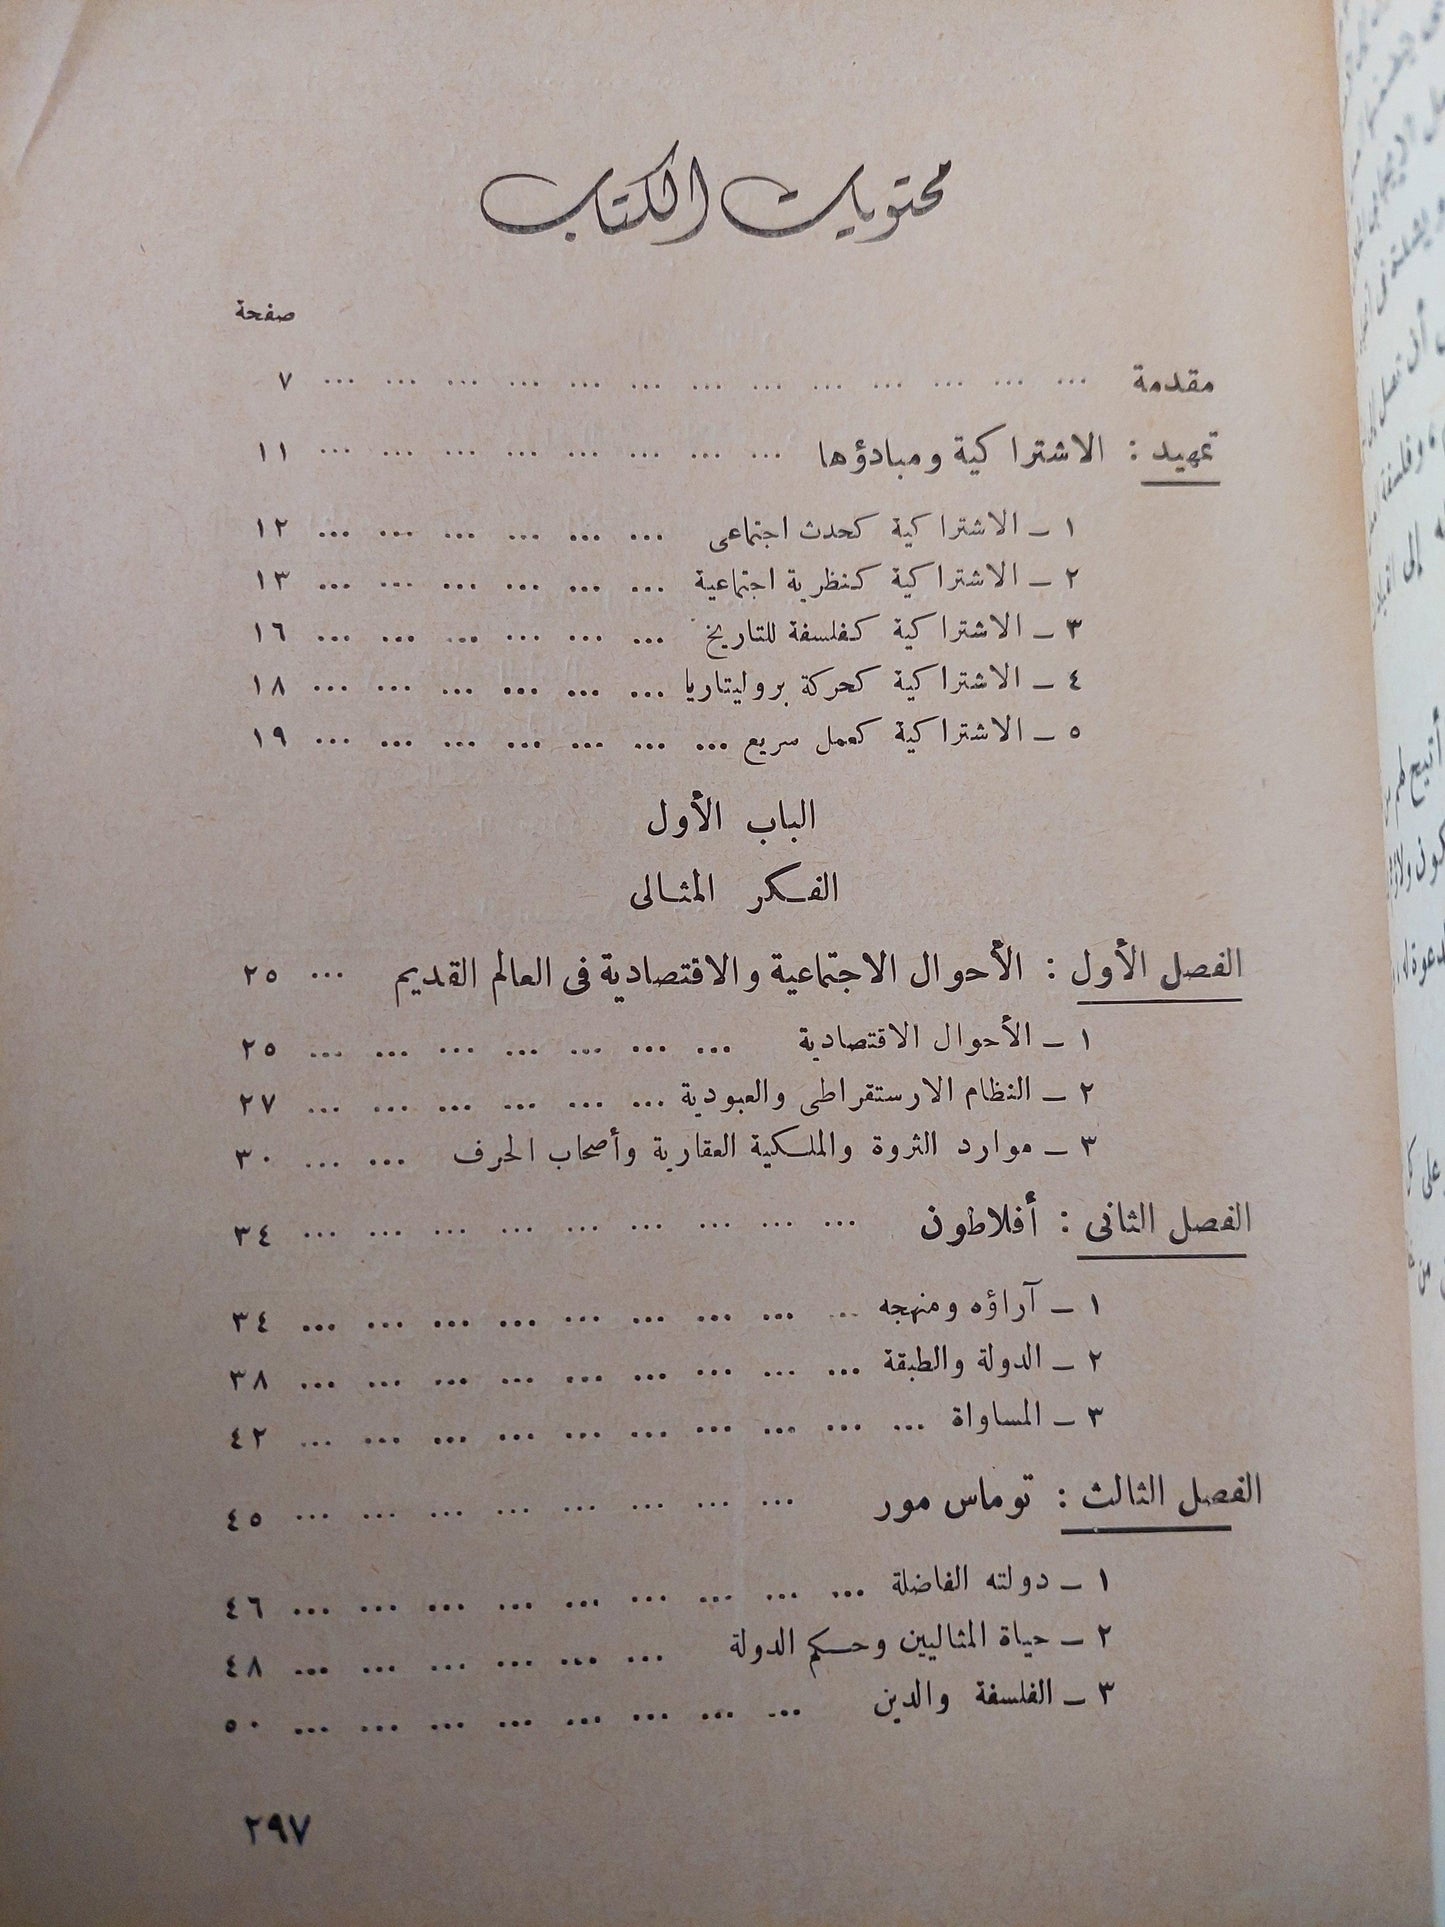 محتويات الكتاب
صفحة
مقدمة ... ... ... ... ... ... ... ... ... ... ... ... ... ٧
تمهيد : الاشتراكية ومبادؤها ... ... ... ... ... ... ... ... ١١
١ – الاشتراكية كحدث اجتماعى ... ... ... ... ... ... ١٢
٢ – الاشتراكية كنظرية اجتماعية ... ... ... ... ... ... ١٣
٣ – الاشتراكية كفلسفة للتاريخ ... ... ... ... ... ... ١٦
٤ – الاشتراكية كحركة بروليتاريا ... ... ... ... ... ... ١٨
٥ – الاشتراكية كعمل سريع ... ... ... ... ... ... ... ١٩
الباب الأول
الفكر المثالى
الفصل الأول : الأحوال الاجتماعية والاقتصادية فى العالم القديم ... ٢٥
١ – الأحوال الاقتصادية ... ... ... ... ... ... ... ٢٥
٢ – النظام الارستقراطى والعبودية ... ... ... ... ... ... ٢٧
٣ – موارد الثروة والملكية العقارية وأصحاب الحرف ... ... ٣٠
الفصل الثانى : أفلاطون ... ... ... ... ... ... ... ... ... ٣٤
١ – آراؤه ومنهجه ... ... ... ... ... ... ... ... ... ٣٤
٢ – الدولة والطبقة ... ... ... ... ... ... ... ... ... ٣٨
٣ – المساواة ... ... ... ... ... ... ... ... ... ... ٤٢
الفصل الثالث : توماس مور ... ... ... ... ... ... ... ... ٤٥
١ – دولته الفاضلة ... ... ... ... ... ... ... ... ... ٤٦
٢ – حياة المثاليين وحكم الدولة ... ... ... ... ... ... ٤٨
٣ – الفلسفة والدين ... ... ... ... ... ... ... ... ٥٠
٢٩٧